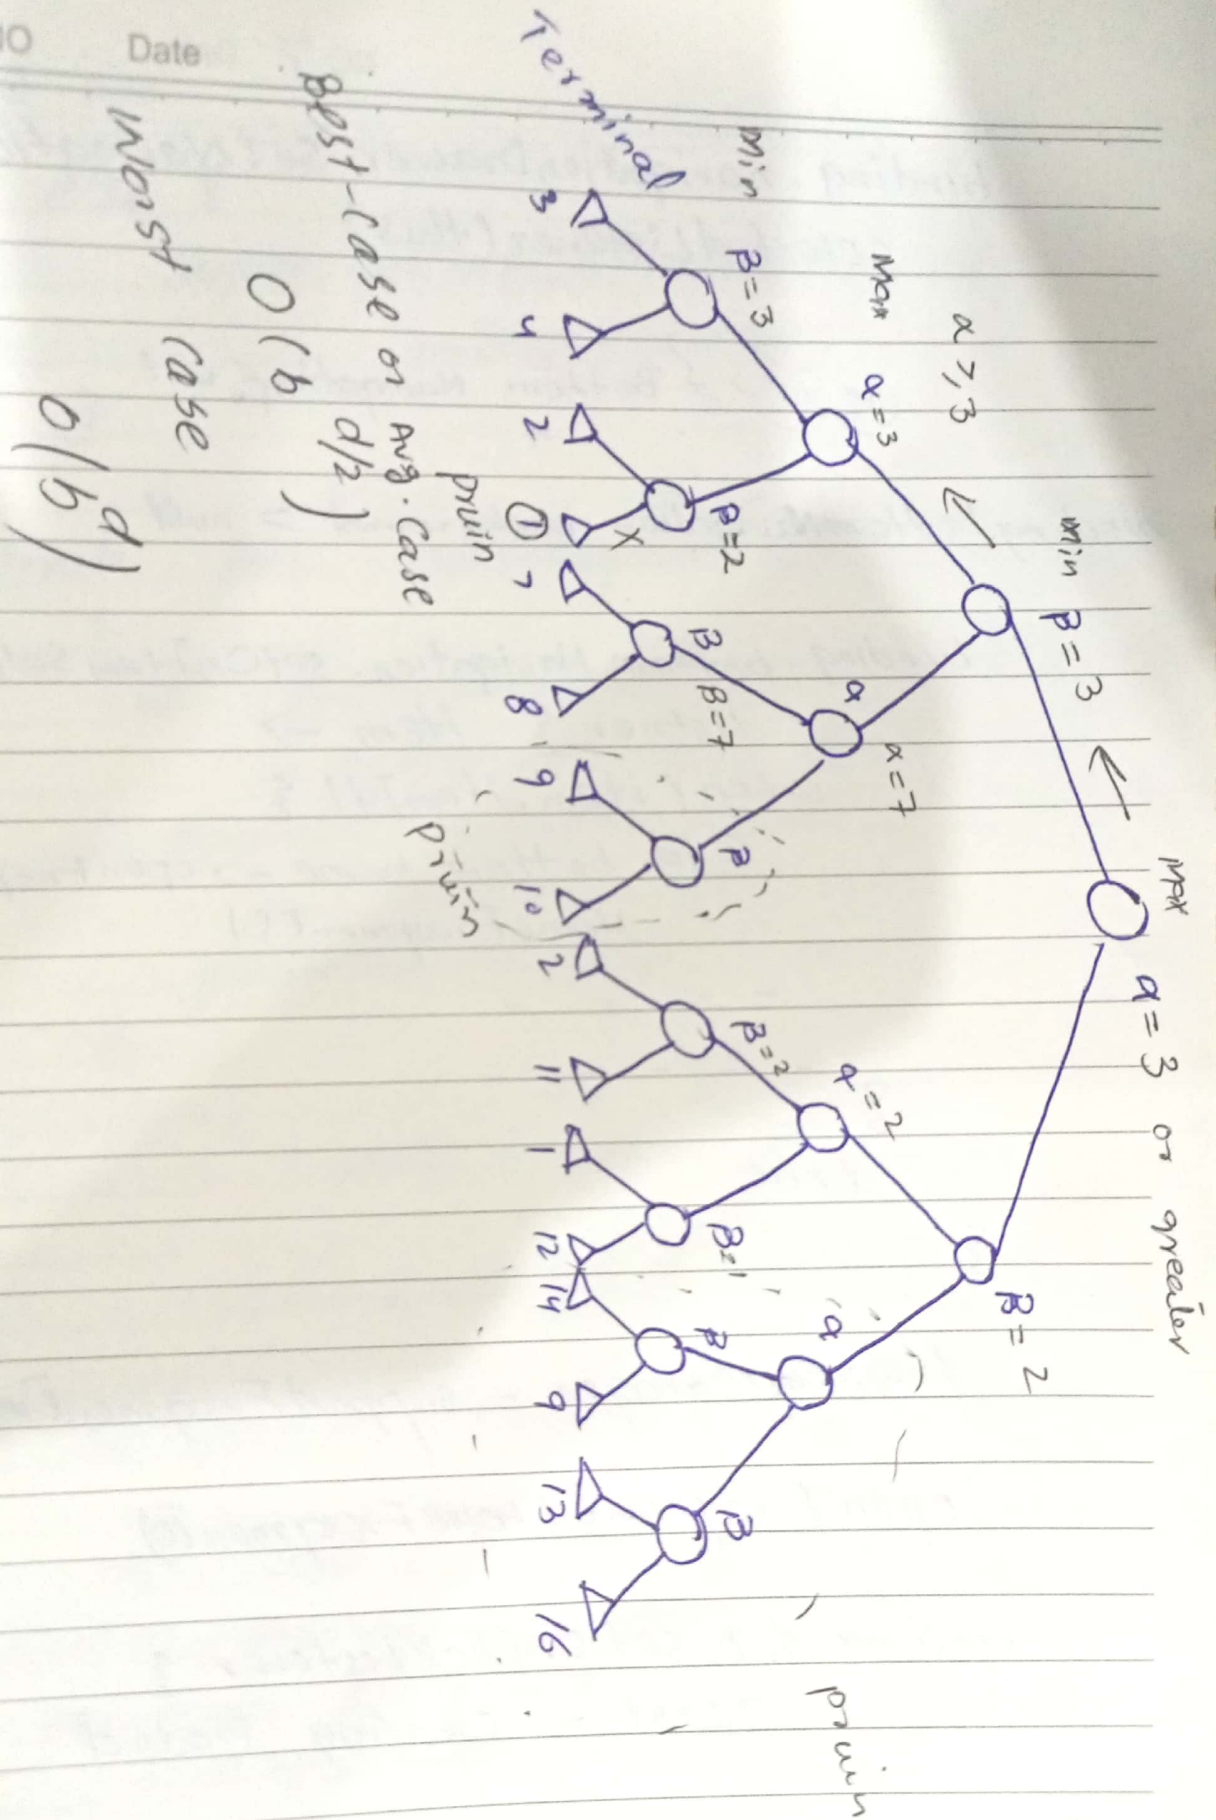 Max α = 3 or greater
min β = 3
β = 2
α ≥ 3
Max α = 3
α
α = 7
α = 2
α
min β = 3
β = 2
β
β = 7
β
β = 2
β = 1
β
β
Terminal
3 4 2 1 7 8 9 10 2 11 1 12 14 9 13 16
X
pruin
pruin
pruin
Best-Case or Avg. Case
O(b d/2)
Worst Case
O(b d)
Date